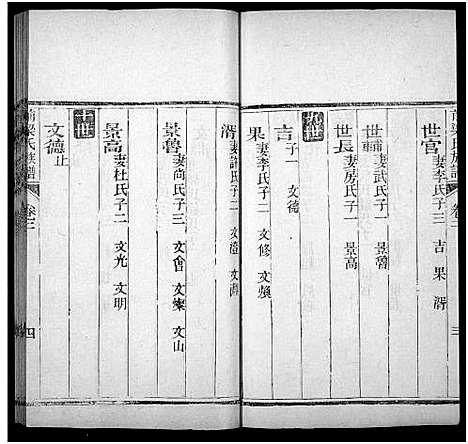 梁氏族譜 卷三 三
世官 妻李氏子三 吉 果 湑
世輔 妻武氏子一 景魯
世長 妻房氏子一 景高
九世
吉 子一 文德
果 妻李氏子二 文修 文煥
湑 妻氏子二 文
景魯 妻尚氏子三 文會 文燦 文山
景高 妻杜氏子二 文光 文明
十世
文德 止
梁氏族譜 卷三 四